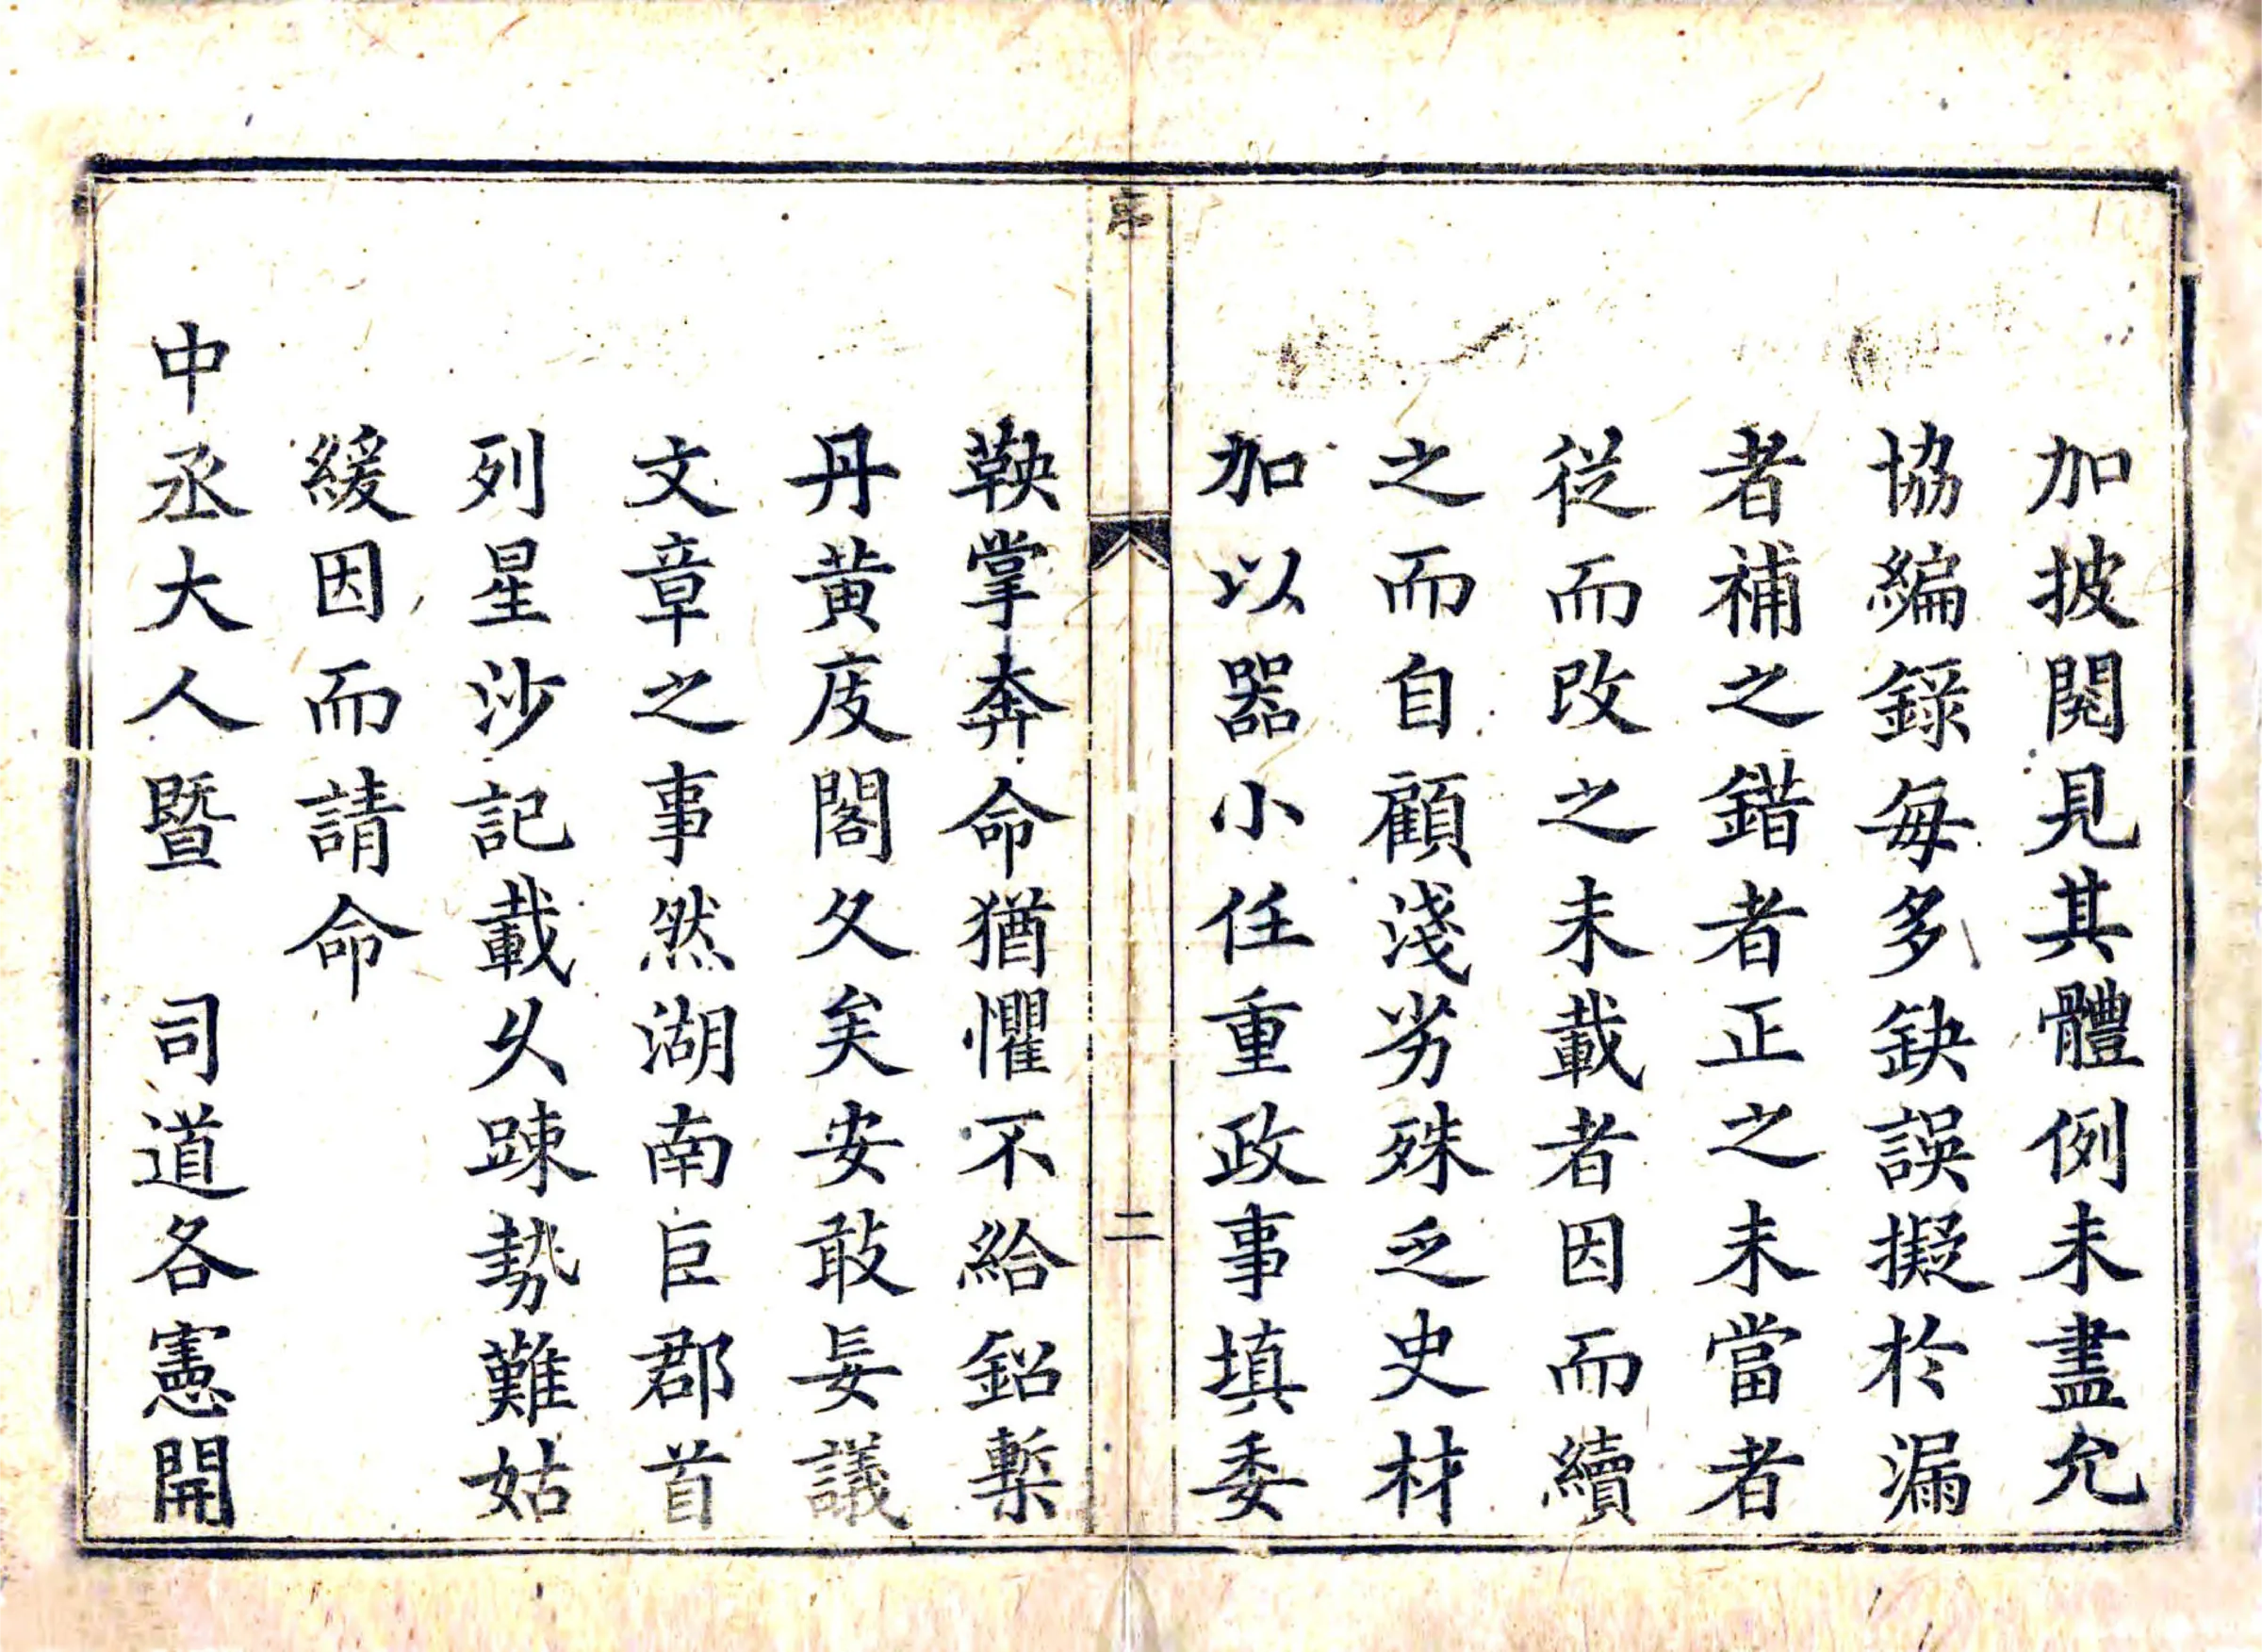 加披閱見其體例未盡允
協編錄每多缺誤擬於漏
者補之錯者正之未當者
從而改之未載者因而續
之而自顧淺劣殊乏史材
加以器小任重政事填委
序
二
鞅掌奔命猶懼不給鉛槧
丹黃庋閣久矣安敢妄議
文章之事然湖南巨郡首
列星沙記載久踈勢難姑
緩因而請命
中丞大人暨　司道各憲開